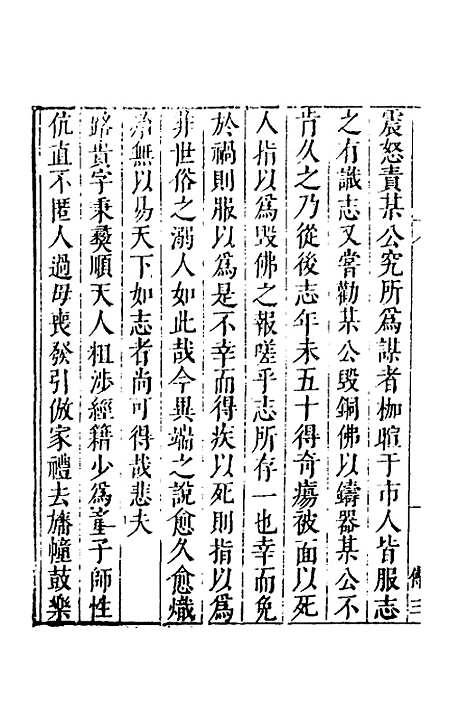 震怒責某公究所爲謀者枷暄于市人皆服志
之有識志又嘗勸某公毀銅佛以鑄器某公不
肯久之乃從後志年未五十得奇瘍被面以死
人指以爲毀佛之報嗟乎志所存一也幸而免
於禍則服以爲是不幸而得疾以死則指以爲
非世俗之溺人如此哉今異端之說愈久愈熾
無以易天下如志者尚可得哉悲夫
路貴字秉彜順天人粗涉經籍少爲童子師性
伉直不匿人過母喪發引倣家禮去旛幢鼓樂
傳三